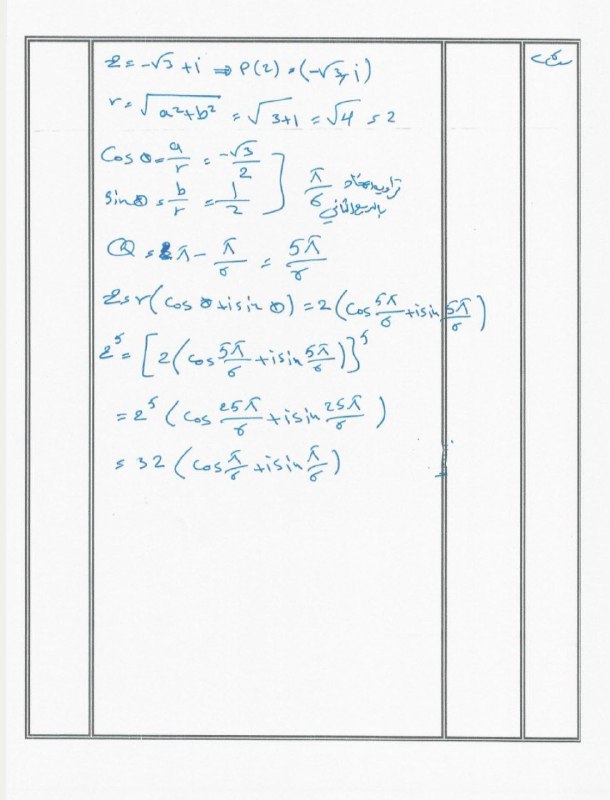 z = -√3 + i ⇒ P(z) = (-√3, i)
r = √(a²+b²) = √(3+1) = √4 = 2
Cos θ = a/r = -√3/2
sin θ = b/r = 1/2
π/6 زاوية
بالربع الثاني
θ = π - π/6 = 5π/6
z = r(cos θ + i sin θ) = 2(cos 5π/6 + i sin 5π/6)
z⁵ = [2(cos 5π/6 + i sin 5π/6)]⁵
= 2⁵ (cos 25π/6 + i sin 25π/6)
= 32 (cos π/6 + i sin π/6)